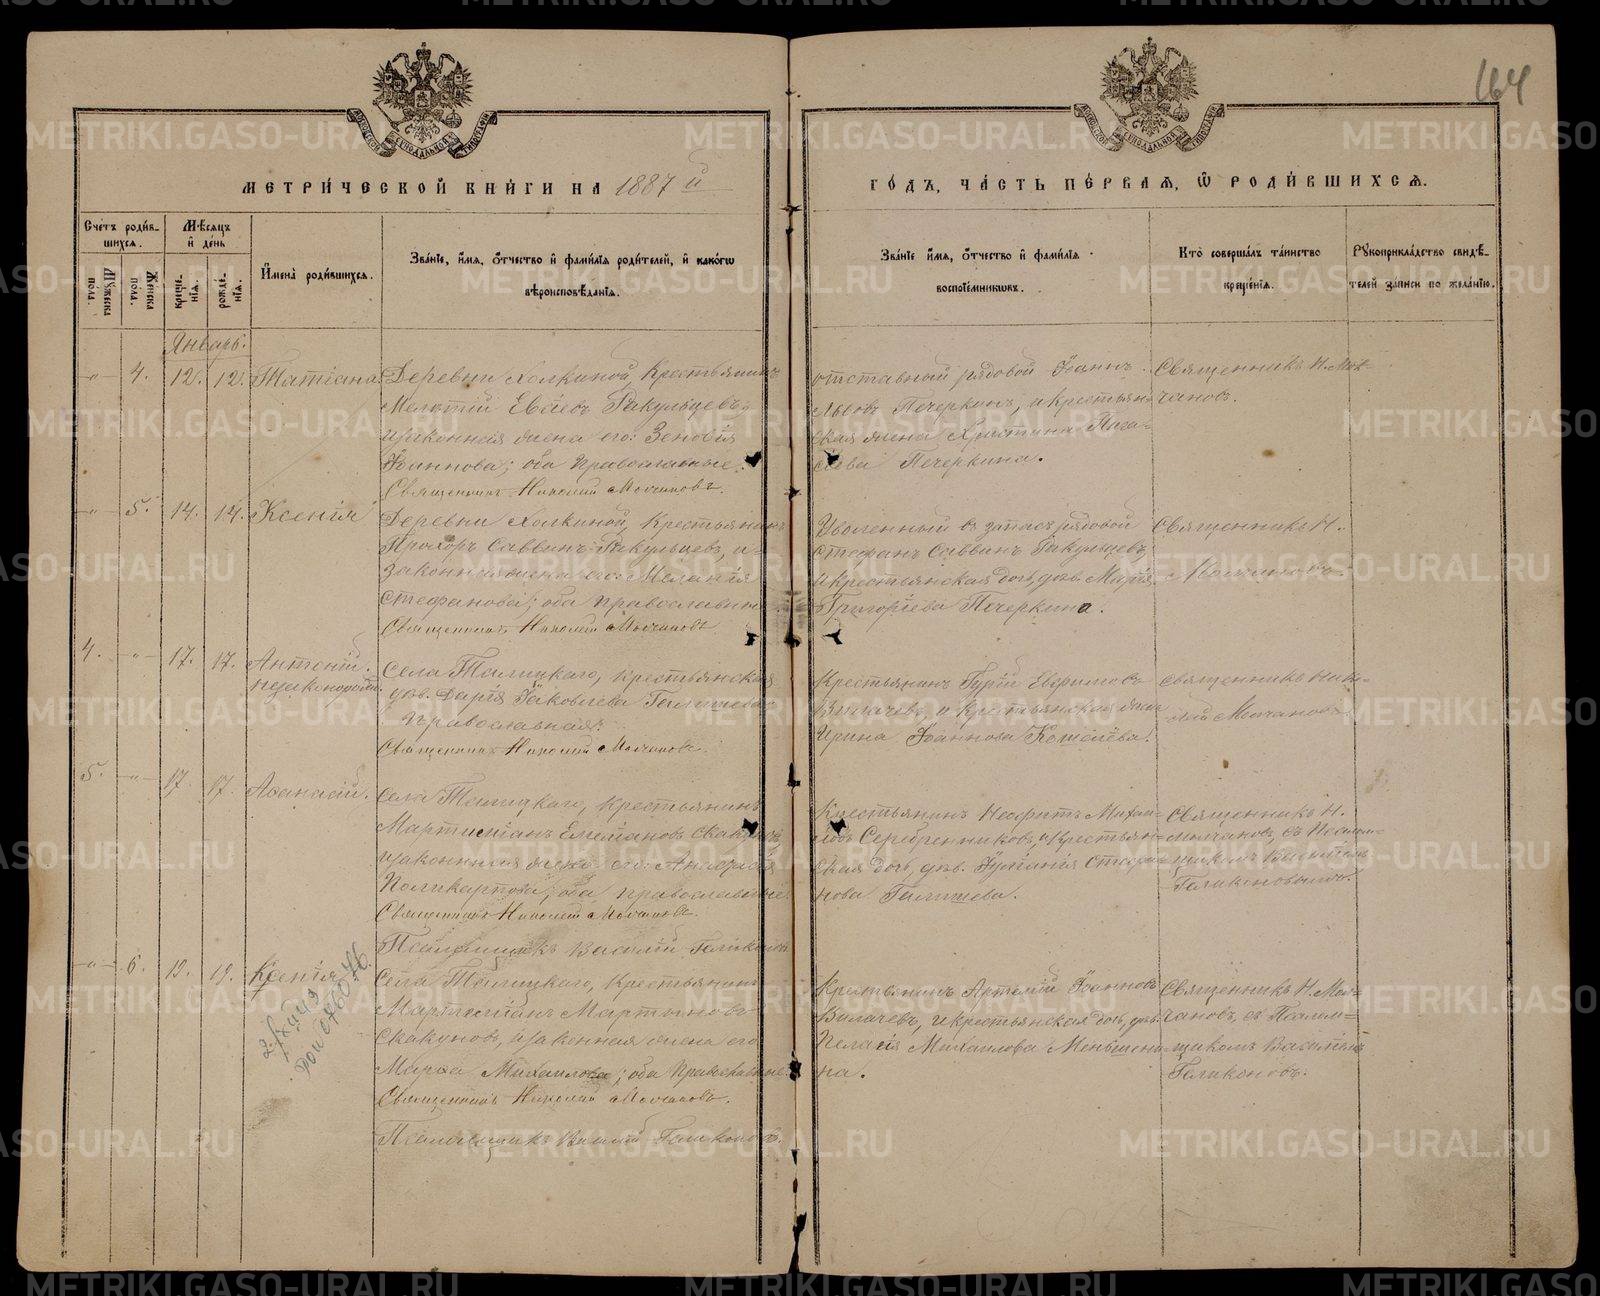 164
МЕТРИ́ЧЕСКОЙ КНИ́ГИ НА 1887 й
ГО́ДЪ, ЧА́СТЬ ПЕ́РВАЯ, Ѡ РОДИ́ВШИХСЯ.
Счетъ роди́вшихся.
Мѣсяцъ и день
Мужеска пола.
Женска пола.
креще́нїѧ.
рожде́нїѧ.
Имена̀ роди́вшихсѧ.
Зва́нїе, имѧ, отчество и фами́лїѧ роди́телей, и како́гѡ
вѣроисповѣ́данїѧ.
Зва́нїе имѧ, отчество и фами́лїѧ
воспрїе́мникѡвъ.
Кто̀ соверша́лъ та́инство
креще́нїѧ.
Рукоприкла́дство свидѣ́-
телей за́писи по жела́нїю.
Январь.
-"- 4. 12. 12. Татіана.
Деревни Холкиной, Крестьянинъ
Мелетій Евсіевъ Ракульцевъ,
и законная жена его: Зеновія
Іоаннова; оба православные.
Священникъ Николай Молчановъ.
отставный рядовой Іоаннъ
Львовъ Печеркинъ, и крестьян-
ская жена Христина
Печеркина.
Священникъ Н. Мол-
чановъ.
-"- 5. 14. 14. Ксенія
Деревни Холкиной, Крестьянинъ
Прохоръ Саввинъ Ракульцевъ, и
законная жена его: Меланія
Стефанова; оба православные.
Священникъ Николай Молчановъ.
Уволенный въ запасъ рядовой
Стефанъ Саввинъ Ракульцевъ,
и крестьянская дочь, дѣв. Марія
Григоріева Печеркина.
Священникъ Н.
Молчановъ.
4. -"- 17. 17. Антоній.
незаконорожд.
Села Талицкаго, крестьянская
дѣв. Дарія Іаковлева Галишева
православная.
Священникъ Николай Молчановъ.
Крестьянинъ Гурій Ефимовъ
и крестьянская жена
Ирина Іоаннова Кошелева.
священникъ Нико-
лай Молчановъ.
5. -"- 17. 17. Аѳанасій.
Села Талицкаго, крестьянинъ
Мартиніанъ Скакуновъ,
и законная жена его: Анастасія
Поликарпова; оба православные.
Священникъ Николай Молчановъ.
Псаломщикъ Василій Галиконовъ
Крестьянинъ Неофитъ Михаи-
ловъ Серебренниковъ, и крестьян-
ская дочь, дѣв. Стефа-
нова Галишева.
Священникъ Н.
Молчановъ, съ Псалом-
щикомъ Василіемъ
Галиконовымъ.
-"- 6. 19. 19. Ксенія
Села Талицкаго, Крестьянинъ
Мартиніанъ Мартыновъ
Скакуновъ, и законная жена его
Марѳа Михаилова; оба Православные
Священникъ Николай Молчановъ.
Псаломщикъ Василій Галиконовъ.
Крестьянинъ Артемій Іоанновъ
Вилачевъ, и крестьянская дочь, дѣв.
Пелагія Михаилова Меньшени-
на.
Священникъ Н. Мол-
чановъ, съ Псалом-
щикомъ Василіемъ
Галиконовъ.